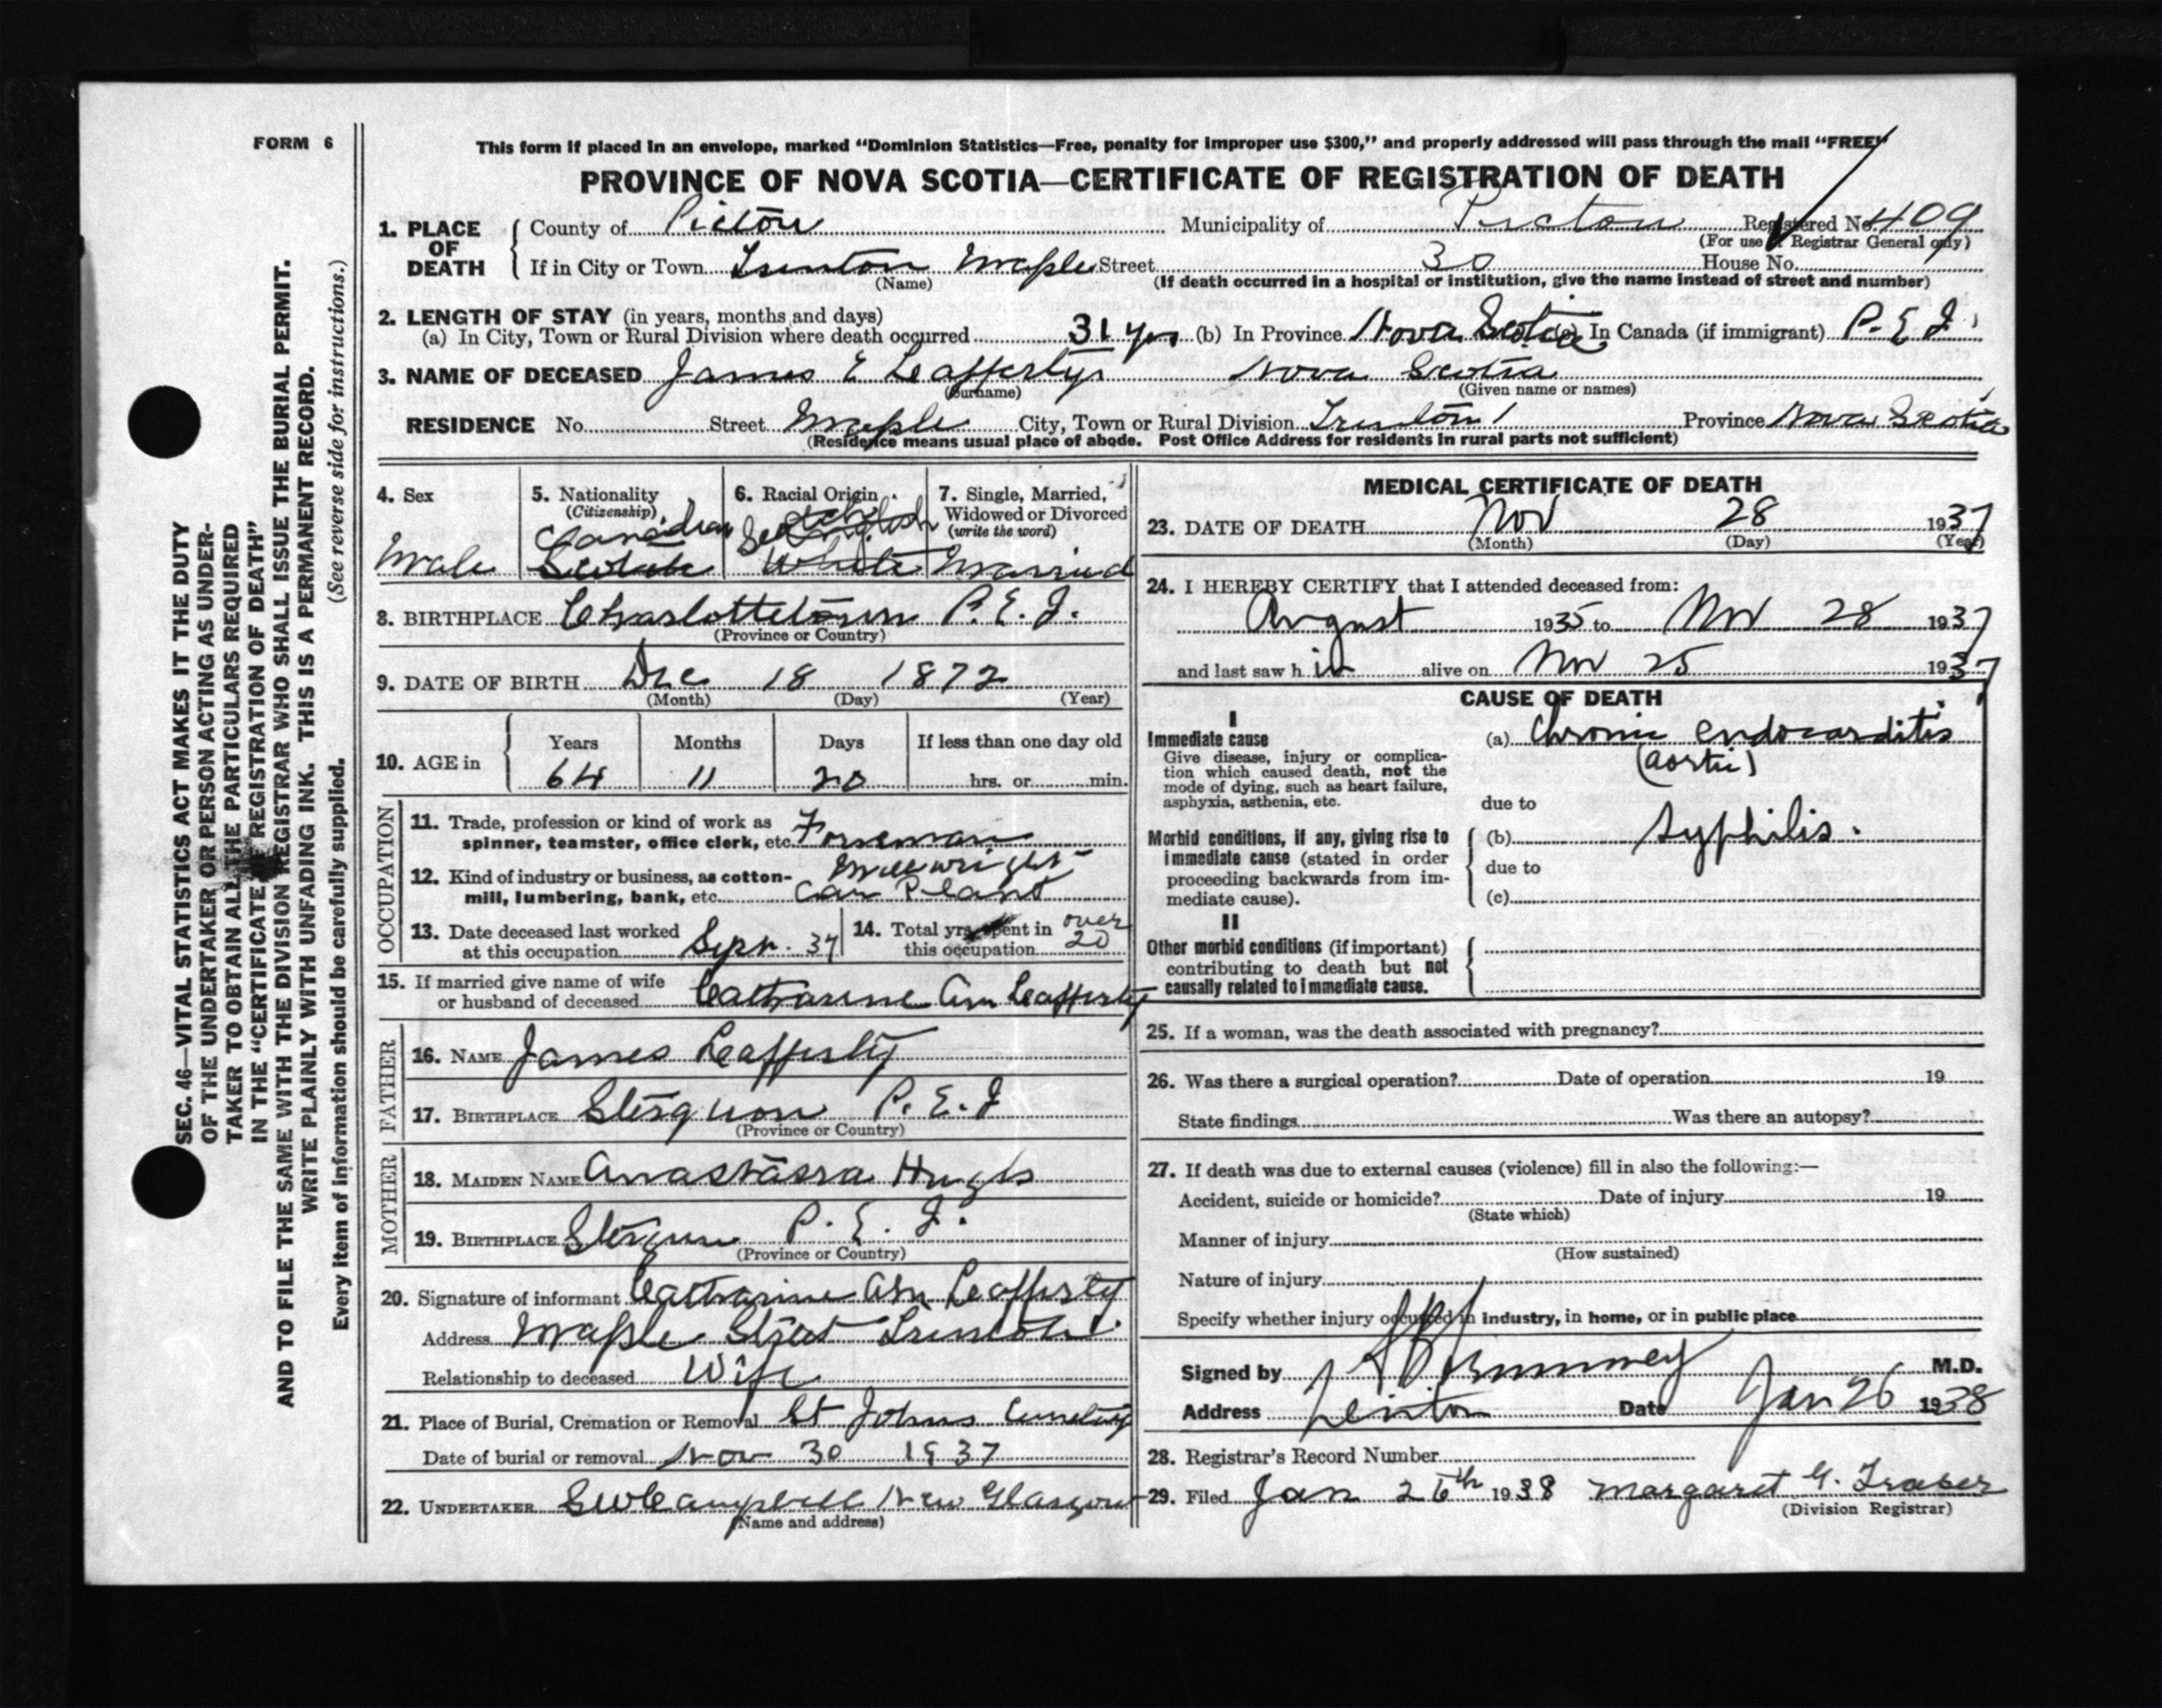 FORM 6
This form if placed in an envelope, marked "Dominion Statistics—Free, penalty for improper use $300," and properly addressed will pass through the mail "FREE"
PROVINCE OF NOVA SCOTIA—CERTIFICATE OF REGISTRATION OF DEATH
1. PLACE OF DEATH
County of Pictou Municipality of Pictou Registered No. 409
(For use of Registrar General only)
If in City or Town Trenton Maple Street 30 House No.
(Name) (If death occurred in a hospital or institution, give the name instead of street and number)
2. LENGTH OF STAY (in years, months and days)
(a) In City, Town or Rural Division where death occurred 31 yrs (b) In Province Nova Scotia (c) In Canada (if immigrant) P. E. I
3. NAME OF DECEASED James E Leafferty Nova Scotia
(Surname) (Given name or names)
RESIDENCE No. Street Maple City, Town or Rural Division Trenton Province Nova Scotia
(Residence means usual place of abode. Post Office Address for residents in rural parts not sufficient)
4. Sex
Male
5. Nationality
(Citizenship)
Canadian
Scotch
6. Racial Origin
White
7. Single, Married, Widowed or Divorced
(write the word)
Married
8. BIRTHPLACE Charlottetown P. E. I.
(Province or Country)
9. DATE OF BIRTH Dec 18 1872
(Month) (Day) (Year)
10. AGE in
Years Months Days If less than one day old
64 11 20 hrs. or min.
OCCUPATION
11. Trade, profession or kind of work as
spinner, teamster, office clerk, etc. Foreman
Millwright
12. Kind of industry or business, as cotton-
mill, lumbering, bank, etc. Car Plant
13. Date deceased last worked
at this occupation Sept. 37
14. Total yrs. spent in
this occupation over 20
15. If married give name of wife
or husband of deceased Catharine Ann Leafferty
FATHER
16. NAME James Leafferty
17. BIRTHPLACE P. E. I
(Province or Country)
MOTHER
18. MAIDEN NAME Anastasra Hughs
19. BIRTHPLACE P. E. I.
(Province or Country)
20. Signature of informant Catharine Ann Leafferty
Address Maple Street Trenton
Relationship to deceased Wife
21. Place of Burial, Cremation or Removal St Johns Cemetery
Date of burial or removal Nov 30 1937
22. UNDERTAKER Campbell New Glasgow
(Name and address)
MEDICAL CERTIFICATE OF DEATH
23. DATE OF DEATH Nov 28 1937
(Month) (Day) (Year)
24. I HEREBY CERTIFY that I attended deceased from:
August 1935 to Nov 28 1937
and last saw h im alive on Nov 25 1937
CAUSE OF DEATH
I
Immediate cause
Give disease, injury or complica-
tion which caused death, not the
mode of dying, such as heart failure,
asphyxia, asthenia, etc.
(a) Chronic endocarditis
(aortic)
due to
Morbid conditions, if any, giving rise to
immediate cause (stated in order
proceeding backwards from im-
mediate cause).
(b) Syphilis.
due to
(c)
II
Other morbid conditions (if important)
contributing to death but not
causally related to immediate cause.
25. If a woman, was the death associated with pregnancy?
26. Was there a surgical operation? Date of operation 19
State findings Was there an autopsy?
27. If death was due to external causes (violence) fill in also the following:—
Accident, suicide or homicide? Date of injury 19
(State which)
Manner of injury
(How sustained)
Nature of injury
Specify whether injury occurred in industry, in home, or in public place
Signed by M.D.
Address Trenton Date Jan 26 1938
28. Registrar's Record Number
29. Filed Jan 26th 1938 Margaret G. Fraser
(Division Registrar)
SEC. 46—VITAL STATISTICS ACT MAKES IT THE DUTY
OF THE UNDERTAKER OR PERSON ACTING AS UNDER-
TAKER TO OBTAIN ALL THE PARTICULARS REQUIRED
IN THE "CERTIFICATE REGISTRATION OF DEATH"
AND TO FILE THE SAME WITH THE DIVISION REGISTRAR WHO SHALL ISSUE THE BURIAL PERMIT.
WRITE PLAINLY WITH UNFADING INK. THIS IS A PERMANENT RECORD.
Every item of information should be carefully supplied. (See reverse side for instructions.)